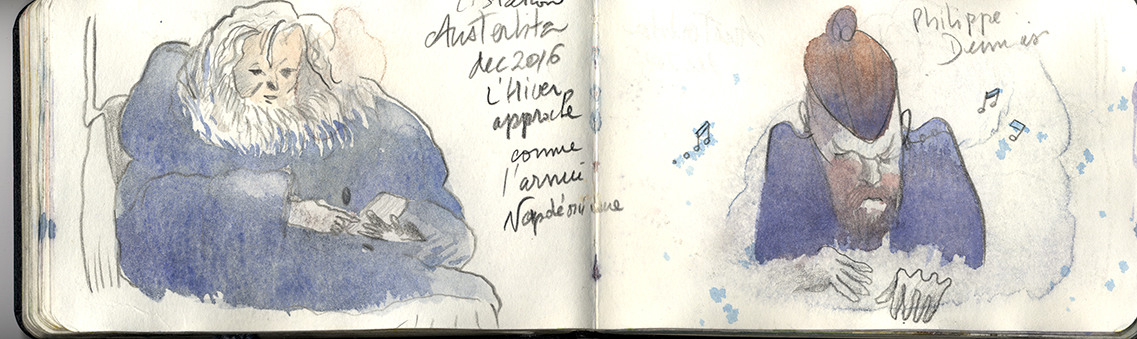 station
Austerlitz
dec 2016
L'Hiver
approche
comme
l'armée
Napoléonienne
Philippe